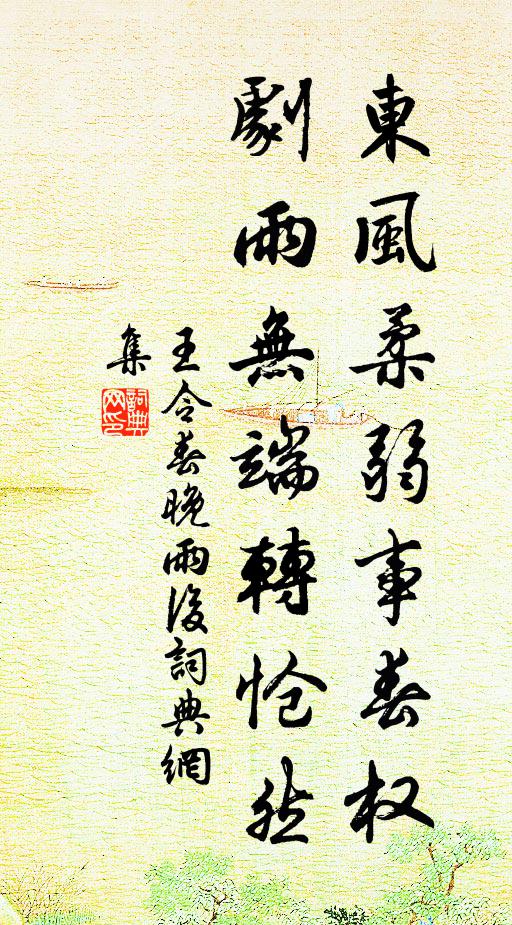 東風柔弱事春权
劇雨無端轉怆然
王令春晚雨後詞典網
集
詞典
网印